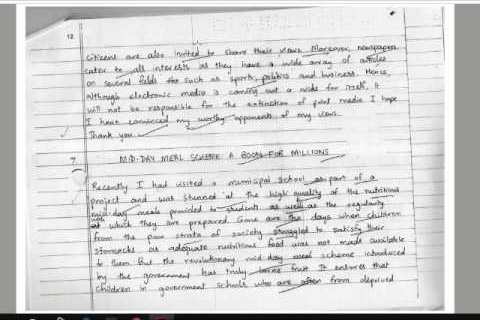 12
citizens are also invited to share their views. Moreover, newspapers
cater to all interests as they have a wide array of articles
on several fields such as sports, politics and business. Hence,
although electronic media is coming out a wide for itself, it
will not be responsible for the extinction of print media I hope
I have convinced my worthy opponents of my views.
Thank you.
7 MID-DAY MEAL SCHEME A BOON FOR MILLIONS
Recently I had visited a municipal school as part of a
project and was stunned at the high quality of the nutritious
mid-day meals provided to students as well as the regularity
with which they are prepared. Gone are the days when children
from the poor strata of society struggled to satisfy their
stomachs as adequate nutritious food was not made available
to them. But the revolutionary mid day meal scheme introduced
by the government has truly borne fruit. It ensures that
children in government schools who are often from deprived